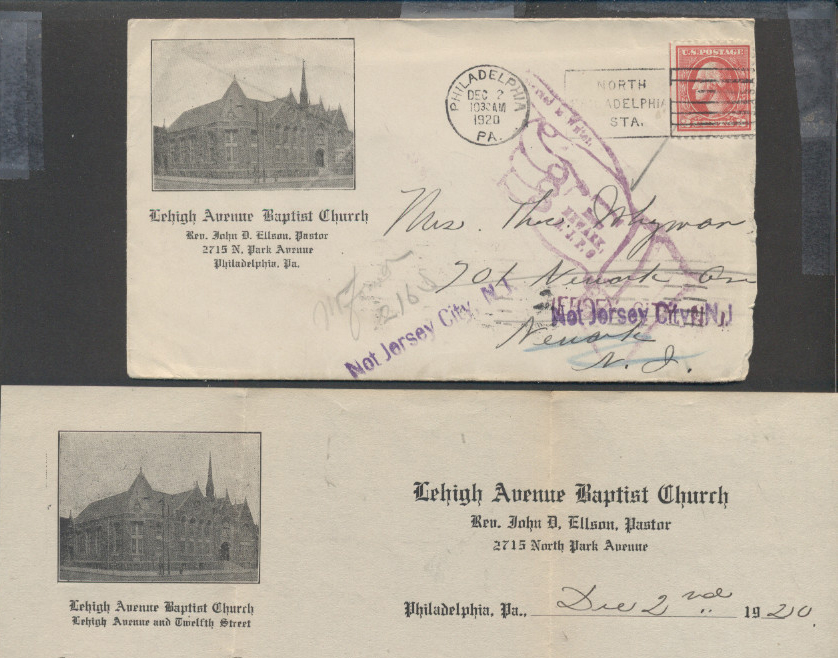 Lehigh Avenue Baptist Church
Rev. John D. Ellson, Pastor
2715 N. Park Avenue
Philadelphia, Pa.
PHILADELPHIA
DEC 2
1030AM
1920
PA.
NORTH
PHILADELPHIA
STA.
U.S. POSTAGE
Mrs. Theo. Whyman
701 Newark Ave
Newark
N. J.
NEWARK
Not Jersey City, N.J
Not Jersey City, N.J
2165
Lehigh Avenue Baptist Church
Lehigh Avenue and Twelfth Street
Lehigh Avenue Baptist Church
Rev. John D. Ellson, Pastor
2715 North Park Avenue
Philadelphia, Pa., Dec 2nd 1920.